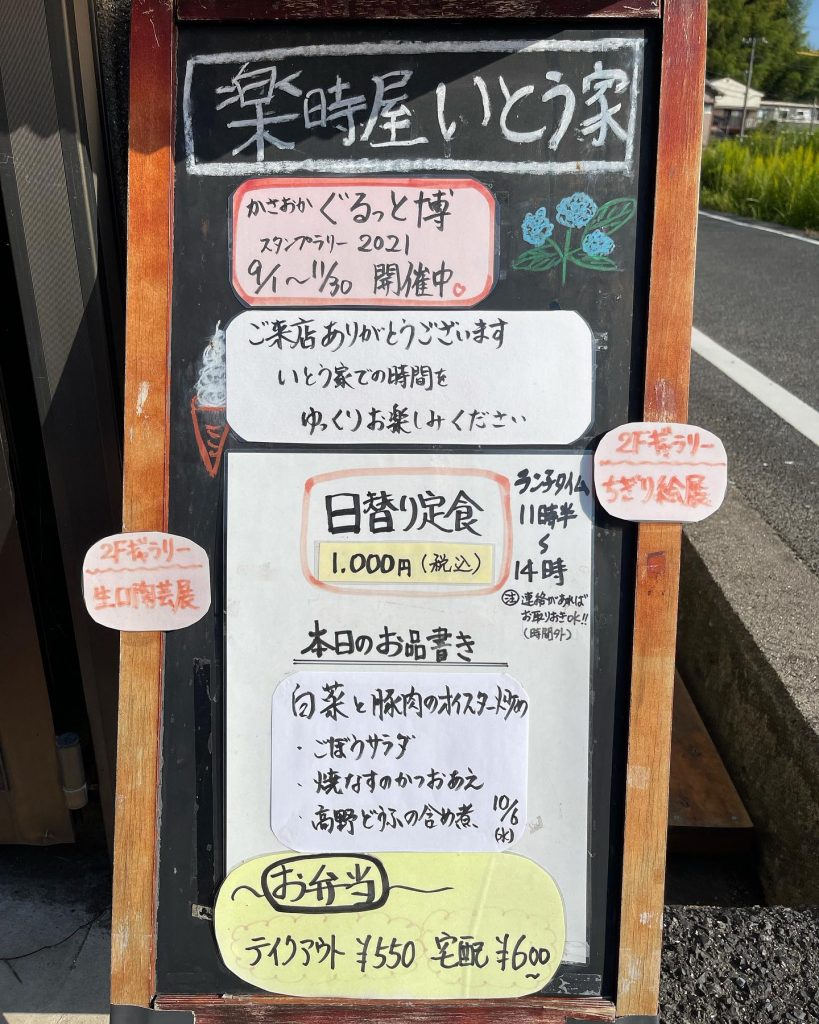 楽時屋 いとう家
かさおか ぐるっと博
スタンプラリー 2021
9/1～11/30 開催中
ご来店ありがとうございます
いとう家での時間を
ゆっくりお楽しみください
2Fギャラリー
ちぎり絵展
2Fギャラリー
生口陶芸展
日替り定食
1.000円(税込)
ランチタイム
11時半
～
14時
注 連絡があれば
お取りおきOK!!
(時間外)
本日のお品書き
白菜と豚肉のオイスター炒め
・ごぼうサラダ
・焼なすのかつおあえ
・高野どうふの含め煮、
10/6
(水)
お弁当
テイクアウト ¥550 宅配 ¥600～